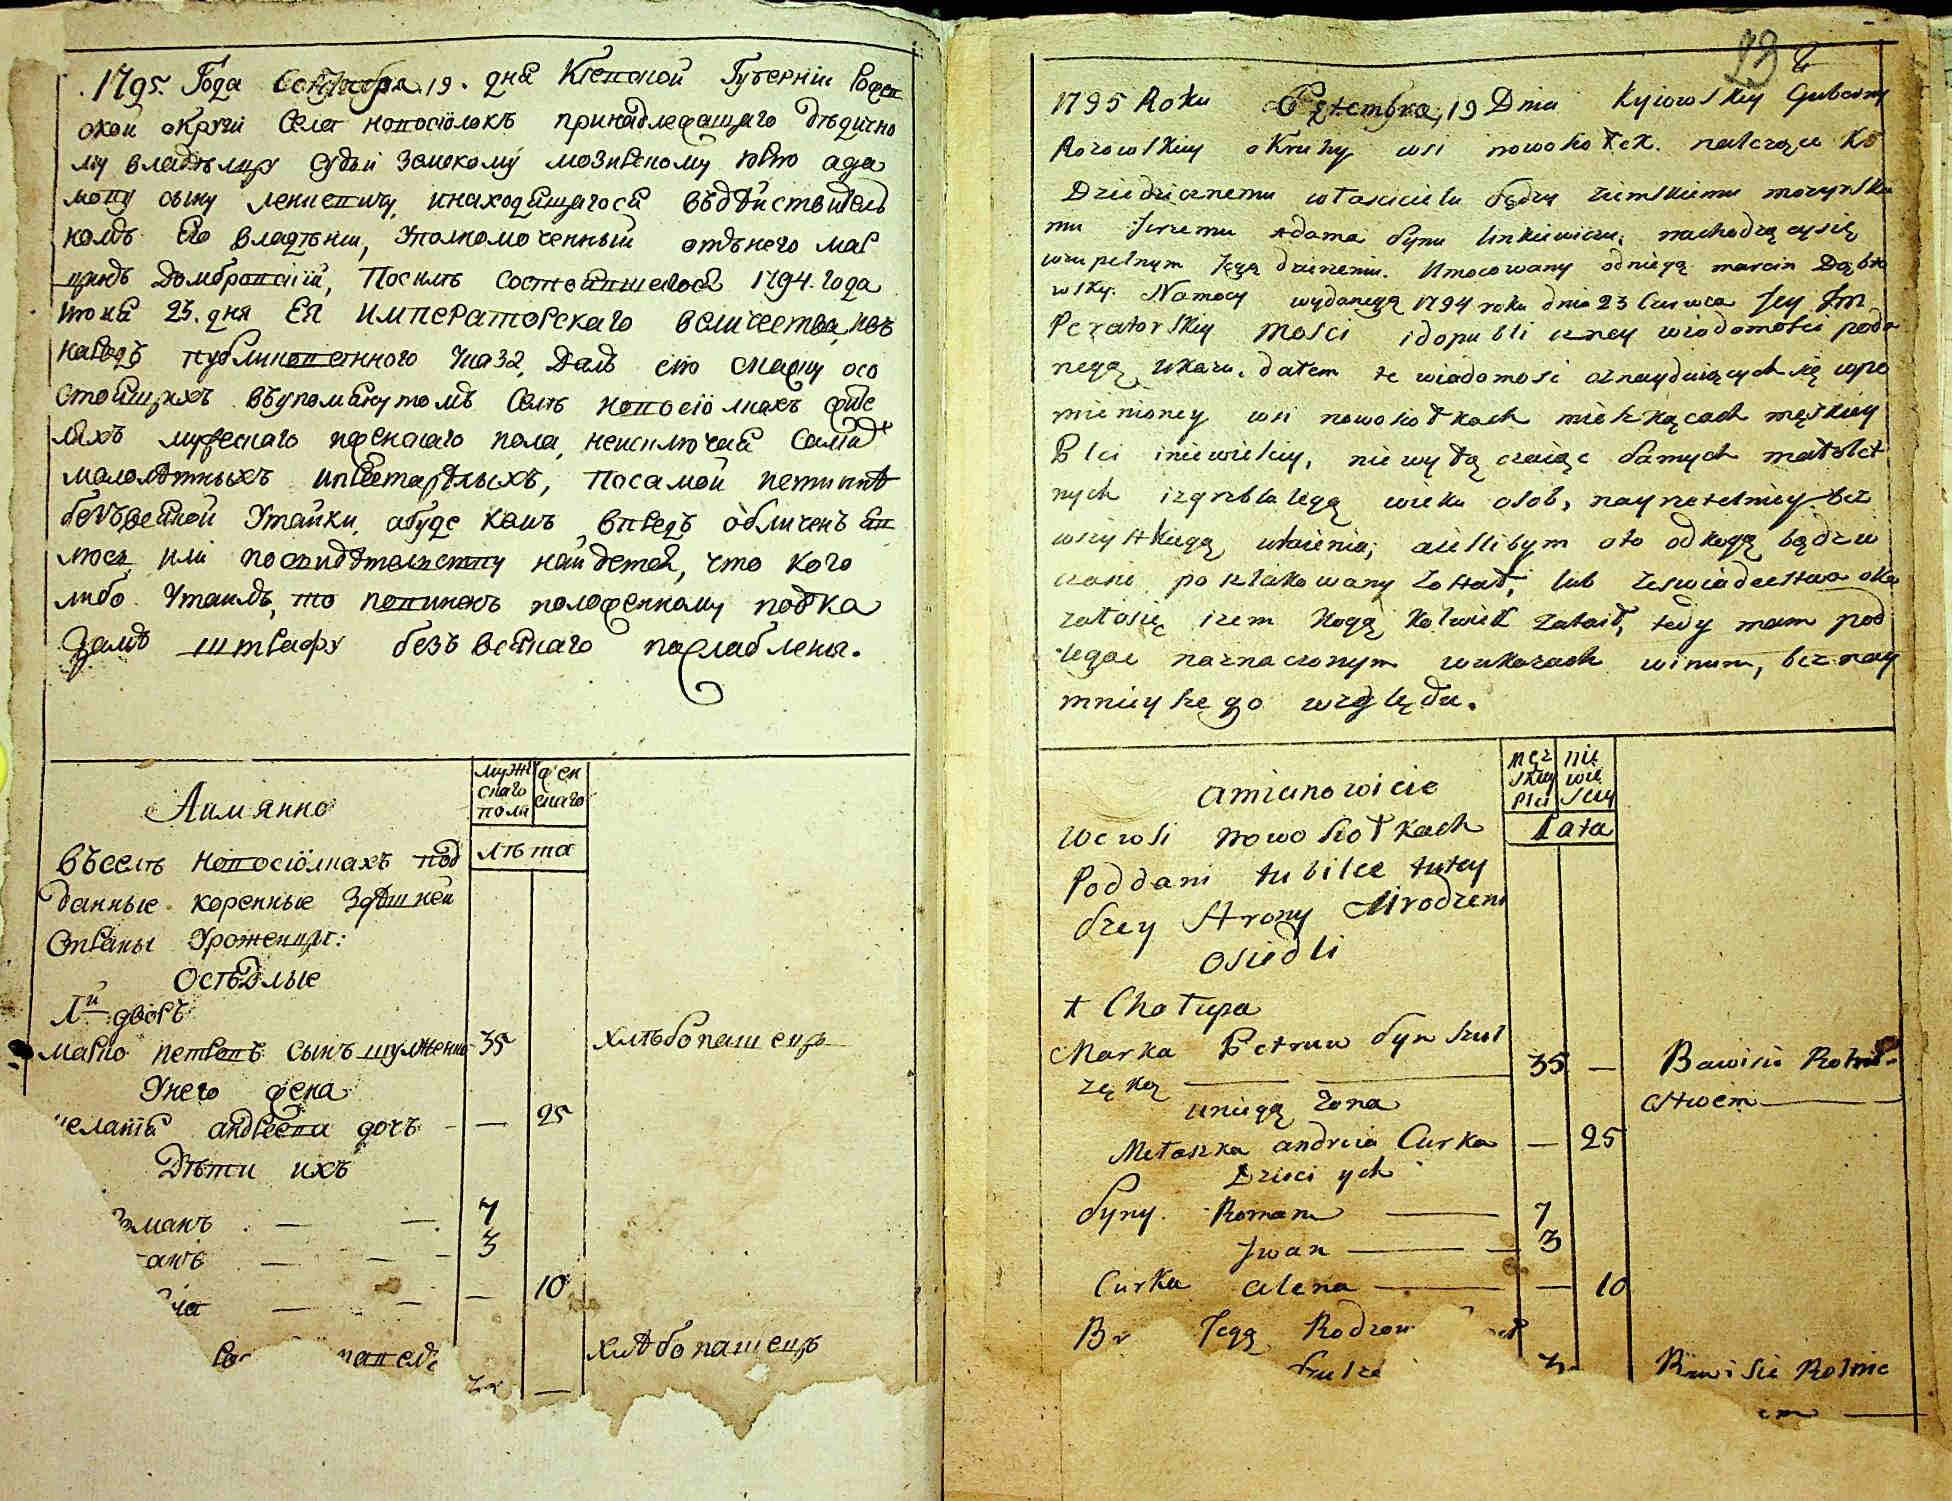 1795. Года Сентября 19. дня Кіевской Губерніи Рожев
ской округи Села новосіолокъ принадлежащаго дѣдично
му владѣльцу судьи Земскому мозирскому юрію ада
мову сыну ленкевичу, инаходящагося въдѣйствитель
номъ Его владѣніи, Уполномоченный отънего мар
цинъ Домбровскій, Посилѣ состоявшегося 1794. года
июня 23. дня Ея ИМПЕРАТОРСКАГО величества, ивъ
народъ публикованного Указа, Далъ сію скаску осо
стоящихъ въупомянутомъ Селѣ новосіолкахъ жите
ляхъ мужескаго иженскаго пола, неисключая самыхъ
малолѣтныхъ ипрестарѣлыхъ, Посамой истиннѣ
безъвсякой Утайки, абуде кемъ впредъ обличенъ яв
люсь или посвидѣтельству найдется, что кого
либо Утаилъ, то повиненъ положенному поУка
замъ штрафу безъ всякаго послаблены.
Аимянно
муже
скаго
пола
жен
скаго
лѣта
Въселѣ Новосіолкахъ под
данные коренные Здѣшней
Страны Уроженцы:
Осѣдлые
1й дворъ
марко петровъ сынъ шулженко 35 хлѣбопашецъ
Унего жена
мелашка андреева дочъ — 25
Дѣти ихъ
романъ — — 7
— — 3
— — — 10
хлѣбопашецъ
23
1795 Roku Septembra, 19 Dnia Kyiowskiey Guberny
Rozowskiey okruhy wsi nowosiołek. należące ku
Dziedzicznemu włascicielu sędzy ziemskiemu mozyrskie
mu Jerzemu Adama synu linkiewiczu, nachodzącysię
wzupełnym Jegą dzierzeniu. Umocowany odniegą marcin Dąbro
wsky. Namocy wydanegą 1794 roku dnia 23 Czerwca Jey Im
Peratorskiey Mosci idopubliczney wiadomości poda
negą ukazu. dałem tę wiadomość oznayduiących się wpo
mienioney wsi nowosiołkach mieszkącach męskiey
Płci iniewieściey, niewyłączaiąc samych małolet
nych izgrzbiałegą wieku osób, nayrzetelniey bez
wszystkiegą utaienia, aiesliby m oto odkogą będzie
czasie poszlakowany został, lub zeswiadectwa oka
załosię izem kogą kolwiek zataił, tedy mam pod
legac naznaczonym wukazach winum, bez nay
mnieyszego względu.
amianowicie
męz
skiey
płci
nie
wie
sciey
Lata
We wsi nowosiołkach
Poddani tubilce tutey
szey strony Urodzeni
osiedli
1 Chałupa
Marka Petruw syn szul
zęka — — 35 — Bawisie Rolni-
ctwem —
uniegą żona
Mełaszka andreia Curka — 25
Dzieci ych
Syny. Roman — 7
Jwan — — 3
Curka alena — — 10
Jegą Rodzon
Bawisie Rolnic
em —